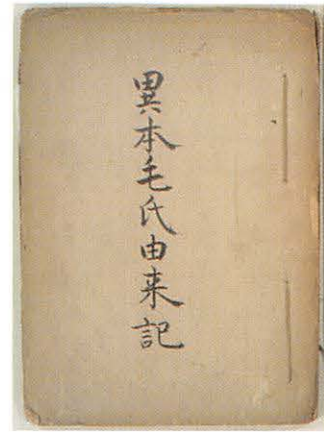 異本毛氏由来記